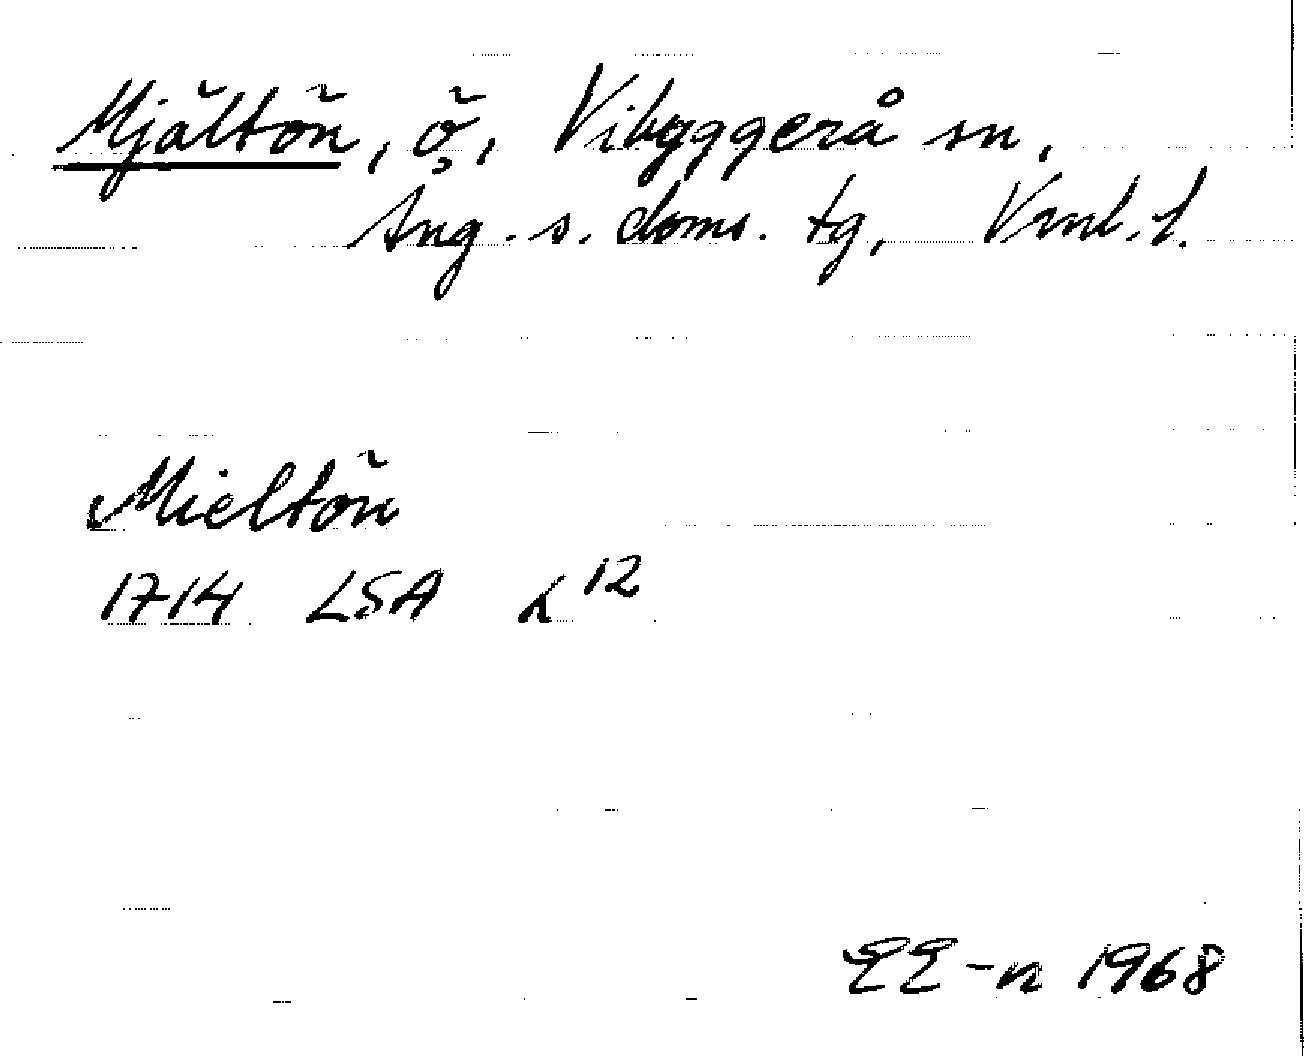 Mjältön, ö, Vibyggerå sn,
Ång. s. doms. tg, Vnl. l.
Mieltön
1714 LSA L 12
EE-n 1968